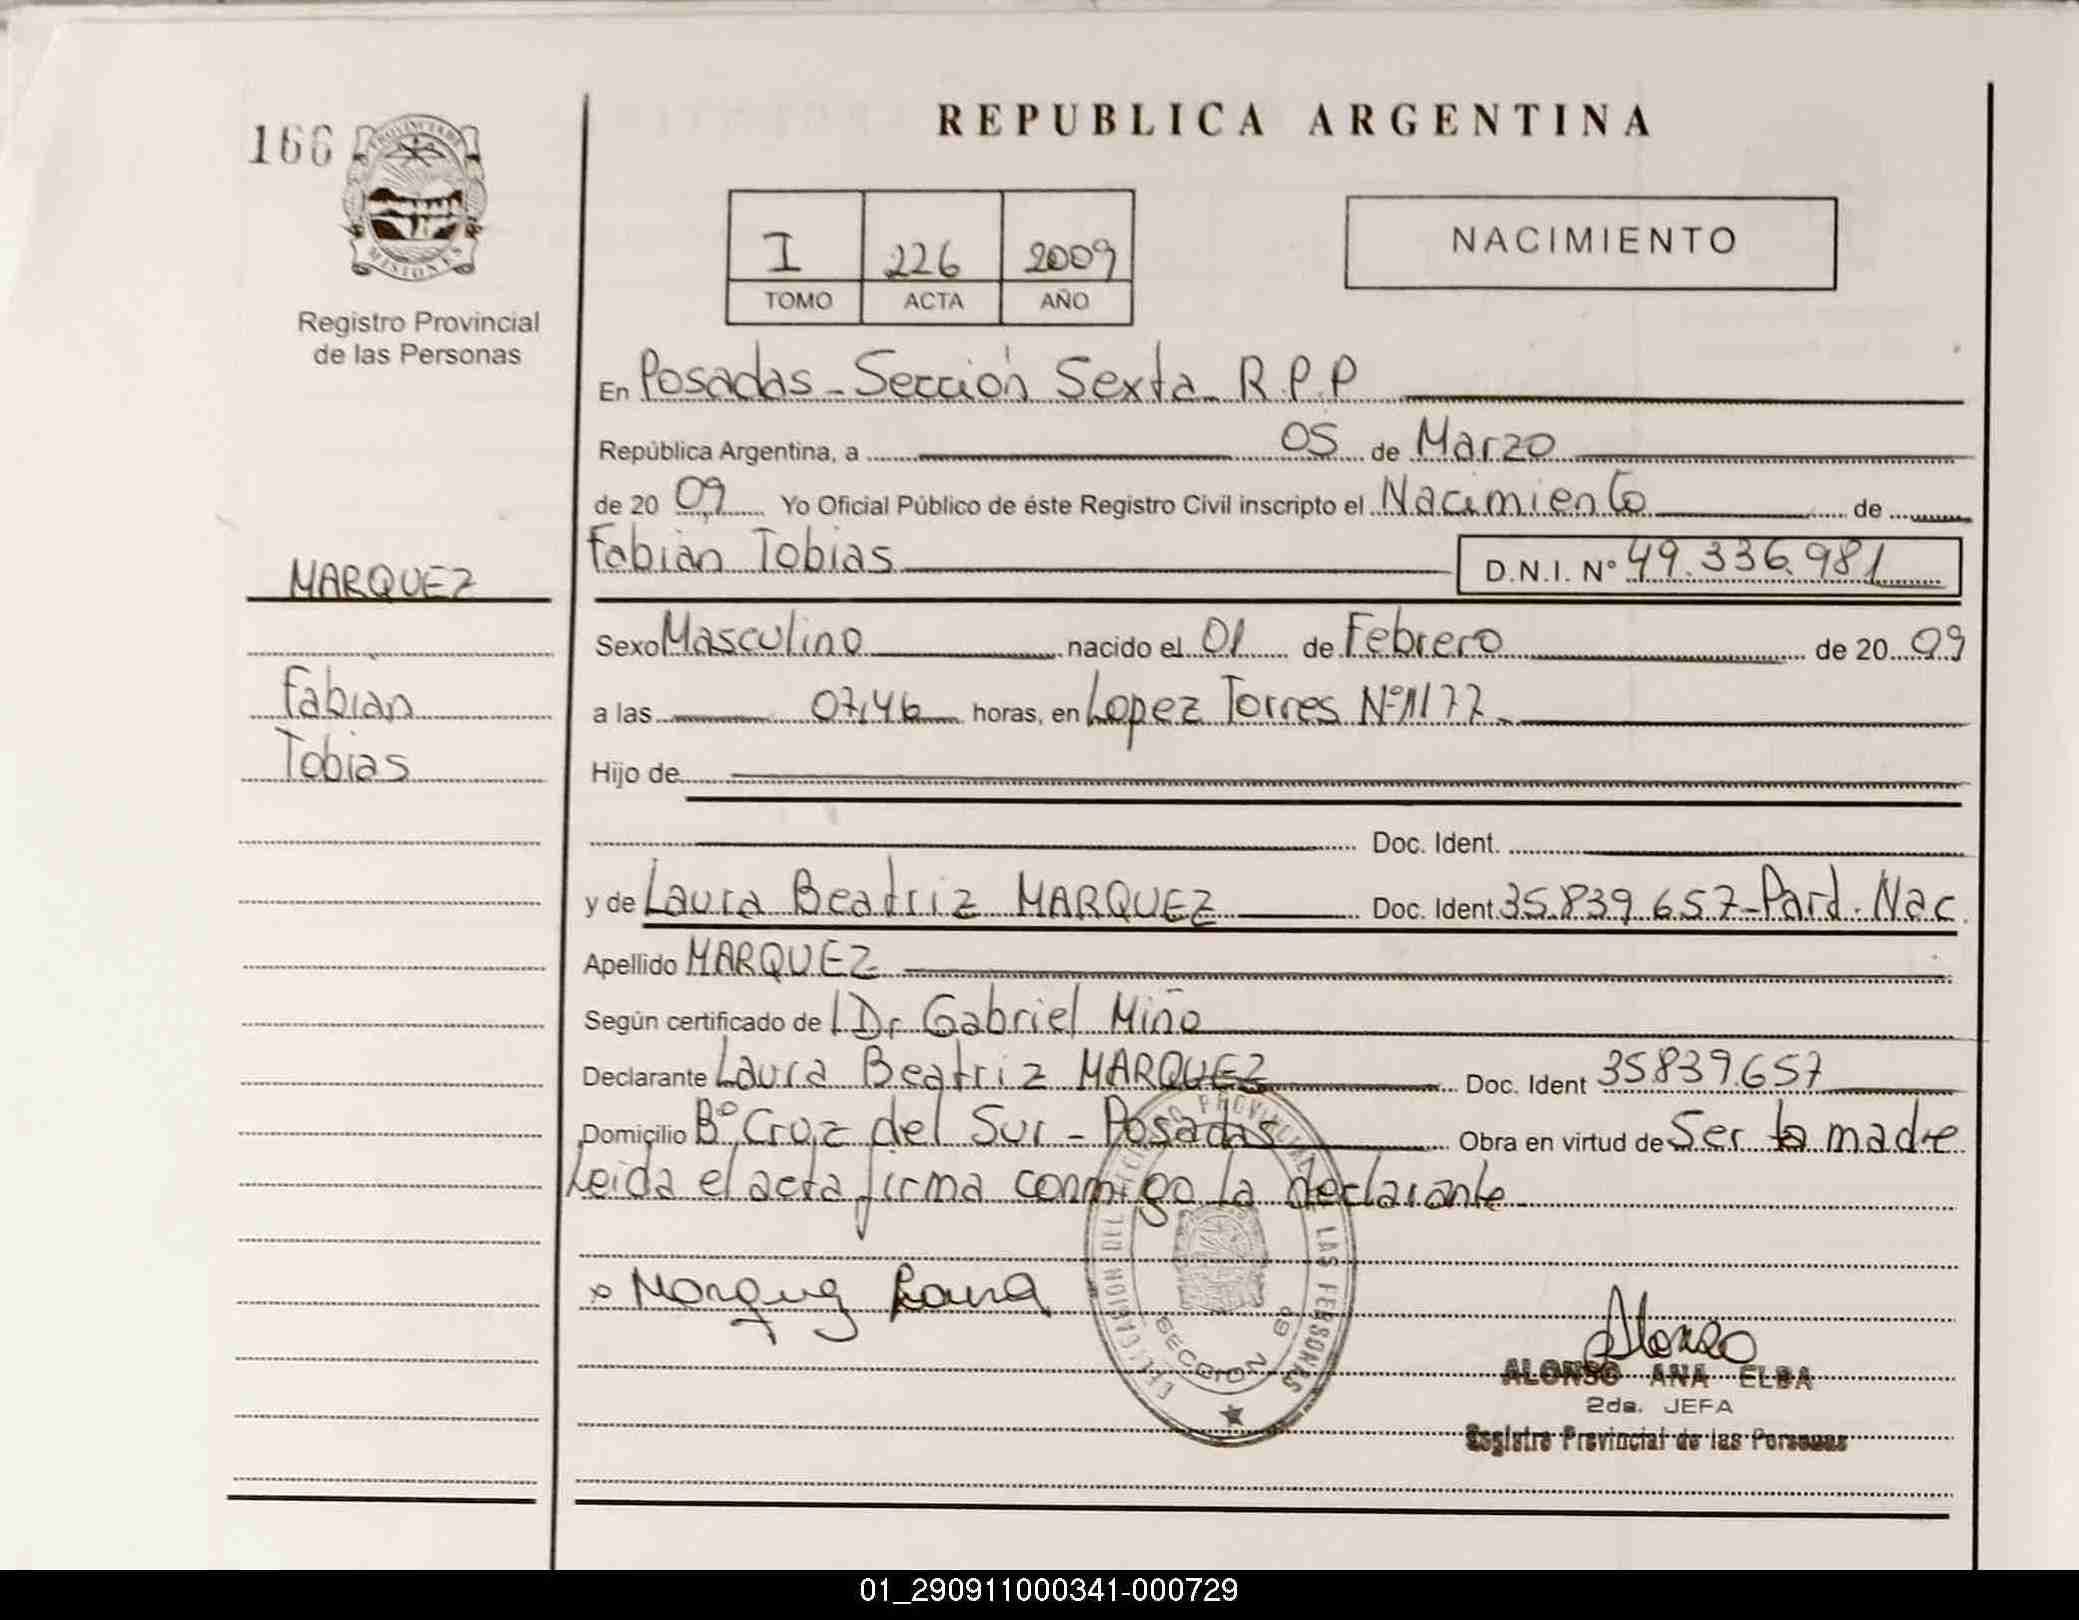 REPUBLICA ARGENTINA
166
PROVINCIA
MISIONES
Registro Provincial
de las Personas
I 226 2009
TOMO ACTA AÑO
NACIMIENTO
En Posadas - Sección Sexta R.P.P
República Argentina, a 05 de Marzo
de 20 09 Yo Oficial Público de éste Registro Civil inscripto el Nacimiento de
Fabián Tobias D.N.I. Nº 49.336.981
MARQUEZ
Sexo Masculino nacido el 01 de Febrero de 20 09
Fabián
a las 07,46 horas, en Lopez Torres Nº 1177
Tobias
Hijo de
Doc. Ident.
y de Laura Beatriz MARQUEZ Doc. Ident 35.839.657 - Nac.
Apellido MARQUEZ
Según certificado del Dr Gabriel Miño
Declarante Laura Beatriz MARQUEZ Doc. Ident 35839.657
Domicilio Bº Cruz del Sur - Posadas Obra en virtud de Ser la madre
Leida el acta firma conmigo la declarante
Marquez Laura
SECCION 6º
LAS PERSONAS
Alonso
ALONSO ANA ELBA
2da. JEFA
Registro Provincial de las Personas
01_290911000341-000729